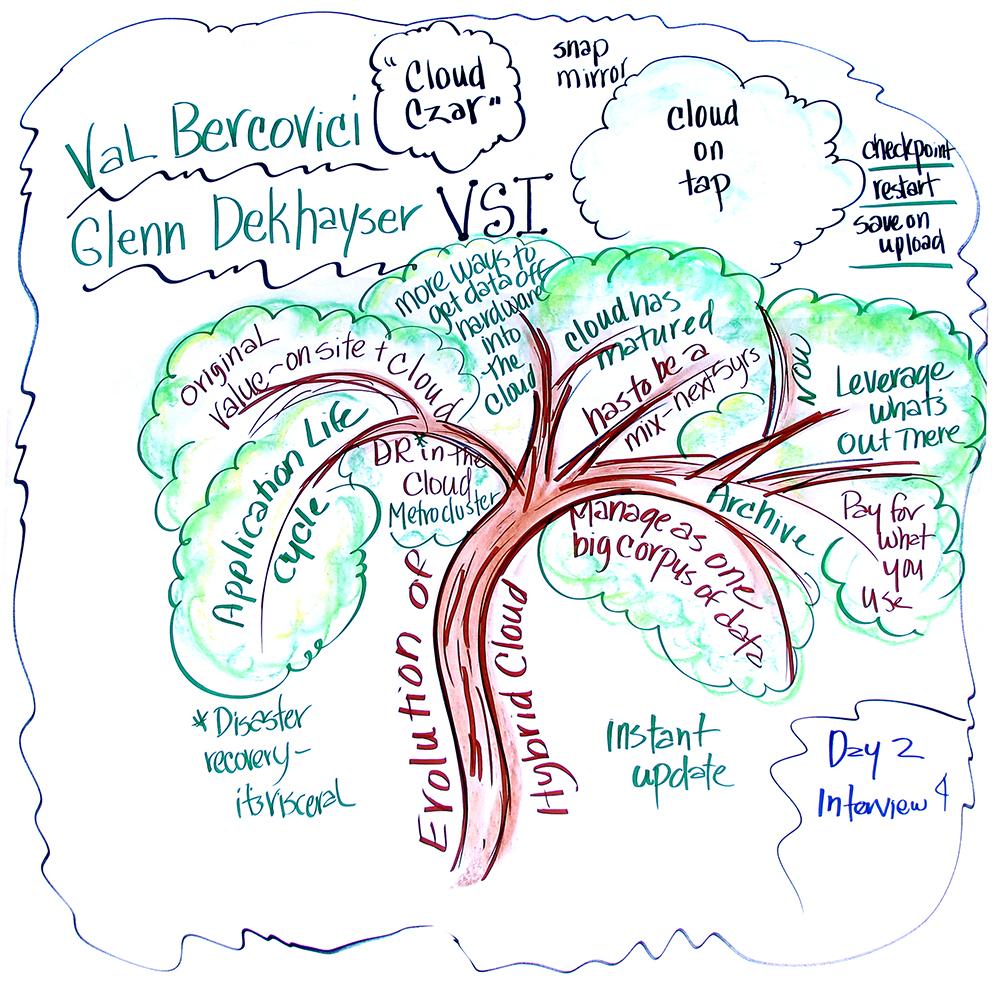 "Cloud
Czar"
snap
mirror
Val Bercovici
Glenn Dekhayser
VSI
cloud
on
tap
checkpoint
restart
save on
upload
more ways to
get data off
hardware
into
the
cloud
original
value - on site + cloud
cloud has
matured
has to be a
mix - next 5 yrs
now
Leverage
whats
out There
Application Life
cycle
DR* in the
Cloud
Metrocluster
Manage as one
big corpus of data
Archive
Pay for
what
you
use
Evolution of
Hybrid Cloud
*Disaster
recovery -
its visceral
instant
update
Day 2
Interview 4